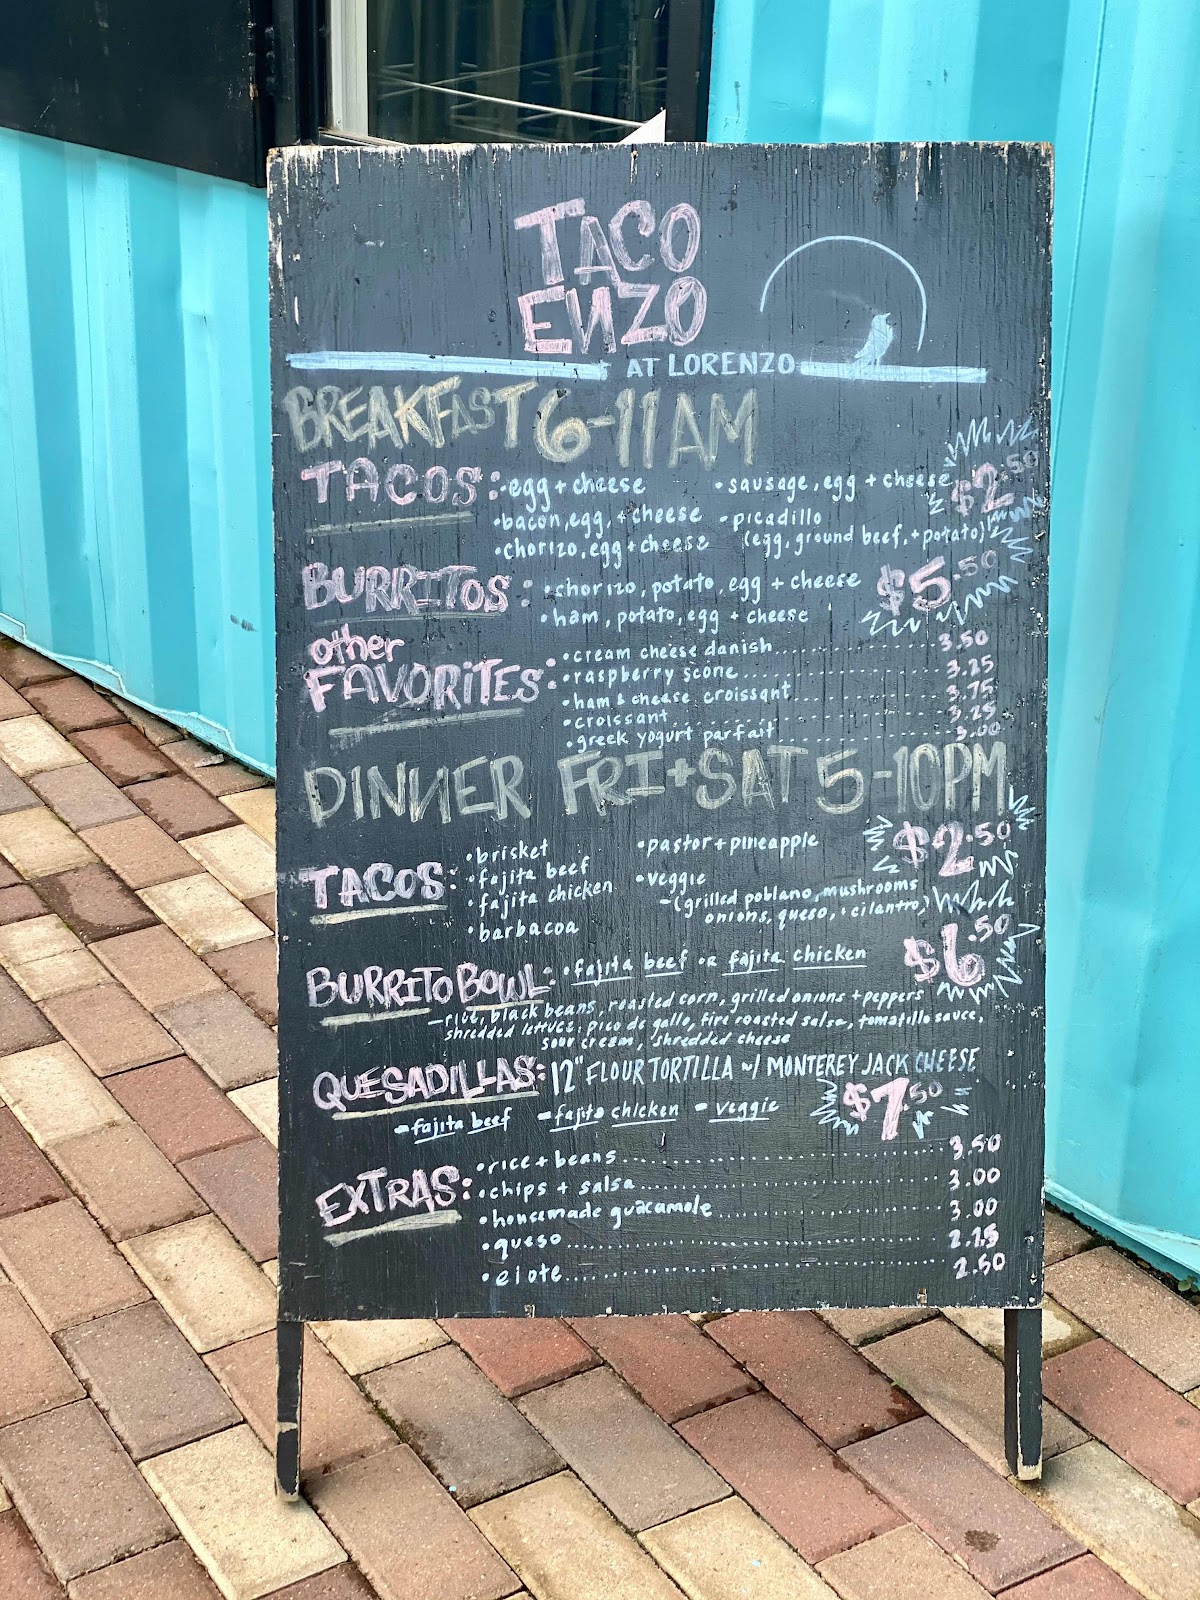 TACO
ENZO
AT LORENZO
BREAKFAST 6-11AM
TACOS: • egg + cheese • sausage, egg + cheese $2.50
• bacon, egg, + cheese • picadillo
• chorizo, egg + cheese (egg, ground beef, + potato)
BURRITOS: • chorizo, potato, egg + cheese $5.50
• ham, potato, egg + cheese
other
FAVORITES: • cream cheese danish 3.50
• raspberry scone 3.25
• ham & cheese croissant 3.75
• croissant 3.25
• greek yogurt parfait 5.00
DINNER FRI + SAT 5-10PM
TACOS: • brisket • pastor + pineapple $2.50
• fajita beef • veggie
• fajita chicken - (grilled poblano, mushrooms
• barbacoa onions, queso, + cilantro)
BURRITO BOWL: • fajita beef or fajita chicken $6.50
- rice, black beans, roasted corn, grilled onions + peppers
shredded lettuce, pico de gallo, fire roasted salsa, tomatillo sauce,
sour cream, shredded cheese
QUESADILLAS: 12" FLOUR TORTILLA w/ MONTEREY JACK CHEESE
- fajita beef - fajita chicken - veggie $7.50
EXTRAS: • rice + beans 3.50
• chips + salsa 3.00
• housemade guacamole 3.00
• queso 2.25
• elote 2.50